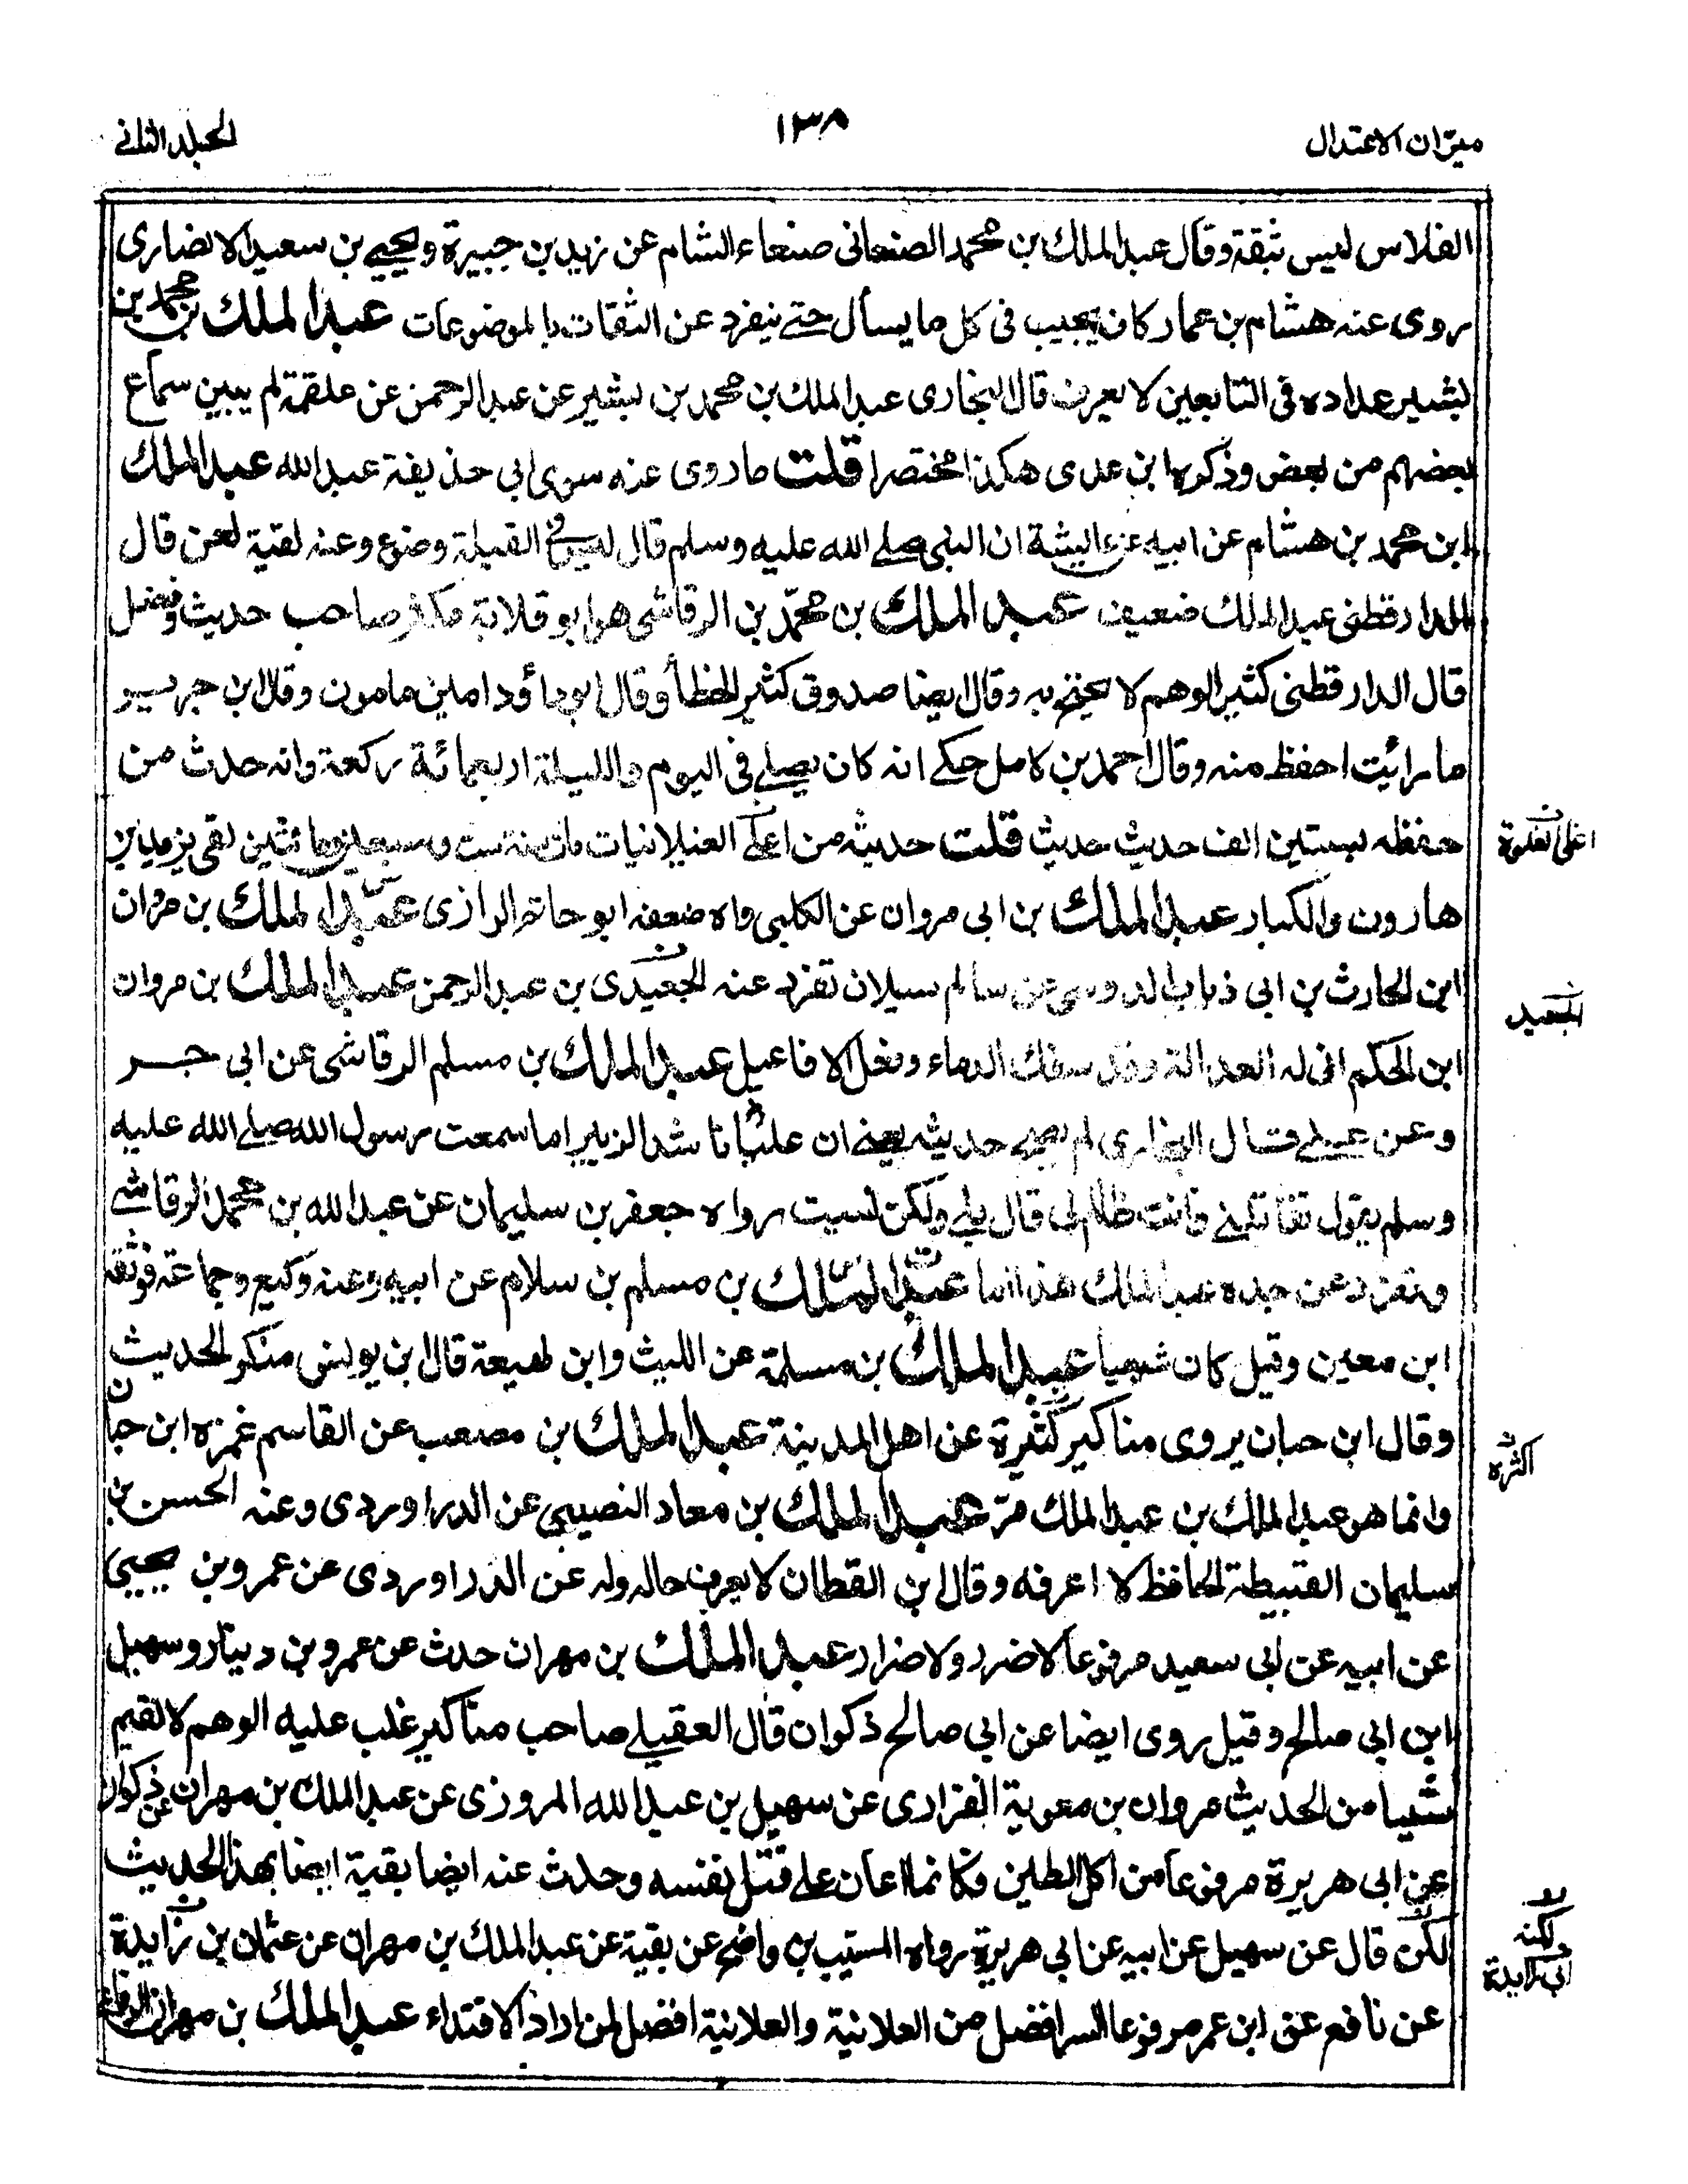 ميزان الاعتدال
١٣٨
المجلد الثاني
الفلاس ليس بثقة وقال عبد الملك بن محمد الصنعانى صنعاء الشام عن زيد بن جبيرة ويحيى بن سعيد الانصارى
روى عنه هشام بن عمار كان يجيب فى كل ما يسأل حتى ينفرد عن الثقات بالموضوعات عبد الملك بن محمد بن
بشير عداده فى التابعين لا يعرف قال البخارى عبد الملك بن محمد بن بشير عن عبد الرحمن عن علقمة لم يبين سماع
بعضهم من بعض وذكره ابن عدى هكذا مختصرا قلت ما روى عنه سوى ابى حذيفة عبد الله عبد الملك
ابن محمد بن هشام عن ابيه عن عايشة ان النبى صلى الله عليه وسلم قال ليس فى القبلة وضوء وعنه بقية لعن قال
الدارقطنى عبد الملك ضعيف عبد الملك بن محمد بن الرقاشى هو ابو قلابة مكثر صاحب حديث وفضل
قال الدارقطنى كثير الوهم لا يحتج به وقال ايضا صدوق كثير الخطأ وقال ابو داؤد امين مامون وقال ابن جرير
ما رائيت احفظ منه وقال احمد بن كامل حكى انه كان يصلى فى اليوم والليلة اربعمائة ركعة وانه حدث من
حفظه بستين الف حديث حديث قلت حديثه من اعلى الغيلانيات مات سنة ست وسبعين ومائتين لقى يزيد بن
هارون والكبار عبد الملك بن ابى مروان عن الكلبى واه ضعفه ابو حاتم الرازى عبد الملك بن مروان
ابن الحارث بن ابى ذباب الدوسى عن سالم سبلان تفرد عنه الجعيدى بن عبد الرحمن عبد الملك بن مروان
ابن الحكم انى له العدالة وقد سفك الدماء وفعل الافاعيل عبد الملك بن مسلم الرقاشى عن ابى جر
وعن على قال البخارى لم يصح حديثه يعنى ان عليا ناشد الزبير اما سمعت رسول الله صلى الله عليه
وسلم يقول تقاتلنى وانت ظالم لى قال بلى ولكن نسيت رواه جعفر بن سليمان عن عبد الله بن محمد الرقاشى
وتفرد عن جده عبد الملك هذا اما عبد الملك بن مسلم بن سلام عن ابيه وعنه وكيع وجماعة فوثقه
ابن معين وقيل كان شيعيا عبد الملك بن مسلمة عن الليث وابن لهيعة قال ابن يونس منكر الحديث
وقال ابن حبان يروى مناكير كثيرة عن اهل المدينة عبد الملك بن مصعب عن القاسم غمزه ابن حبان
وانما هو عبد الملك بن عبد الملك مر عبد الملك بن معاد النصيبى عن الدراوردى وعنه الحسن بن
سليمان القبيطة الحافظ لا اعرفه وقال ابن القطان لا يعرف حاله وله عن الدراوردى عن عمرو بن يحيى
عن ابيه عن ابى سعيد مرفوعا لا ضرر ولا ضرار عبد الملك بن مهران حدث عن عمرو بن دينار وسهيل
ابن ابى صالح وقيل روى ايضا عن ابى صالح ذكوان قال العقيلى صاحب مناكير غلب عليه الوهم لا يقيم
شيئا من الحديث مروان بن معوية الفزارى عن سهيل بن عبد الله المروزى عن عبد الملك بن مهران عن ذكوان
عن ابى هريرة مرفوعا من اكل الطين فكانما اعان على قتل نفسه وحدث عنه ايضا بقية ايضا بهذا الحديث
لكن قال عن سهيل عن ابيه عن ابى هريرة رواه المسيب بن واضح عن بقية عن عبد الملك بن مهران عن عثمان بن زايدة
عن نافع عن ابن عمر مرفوعا السر افضل من العلانية والعلانية افضل لمن اراد الاقتداء عبد الملك بن مهران الرفاعى
الجعيد
اكثره
لكنه
ابى زايدة